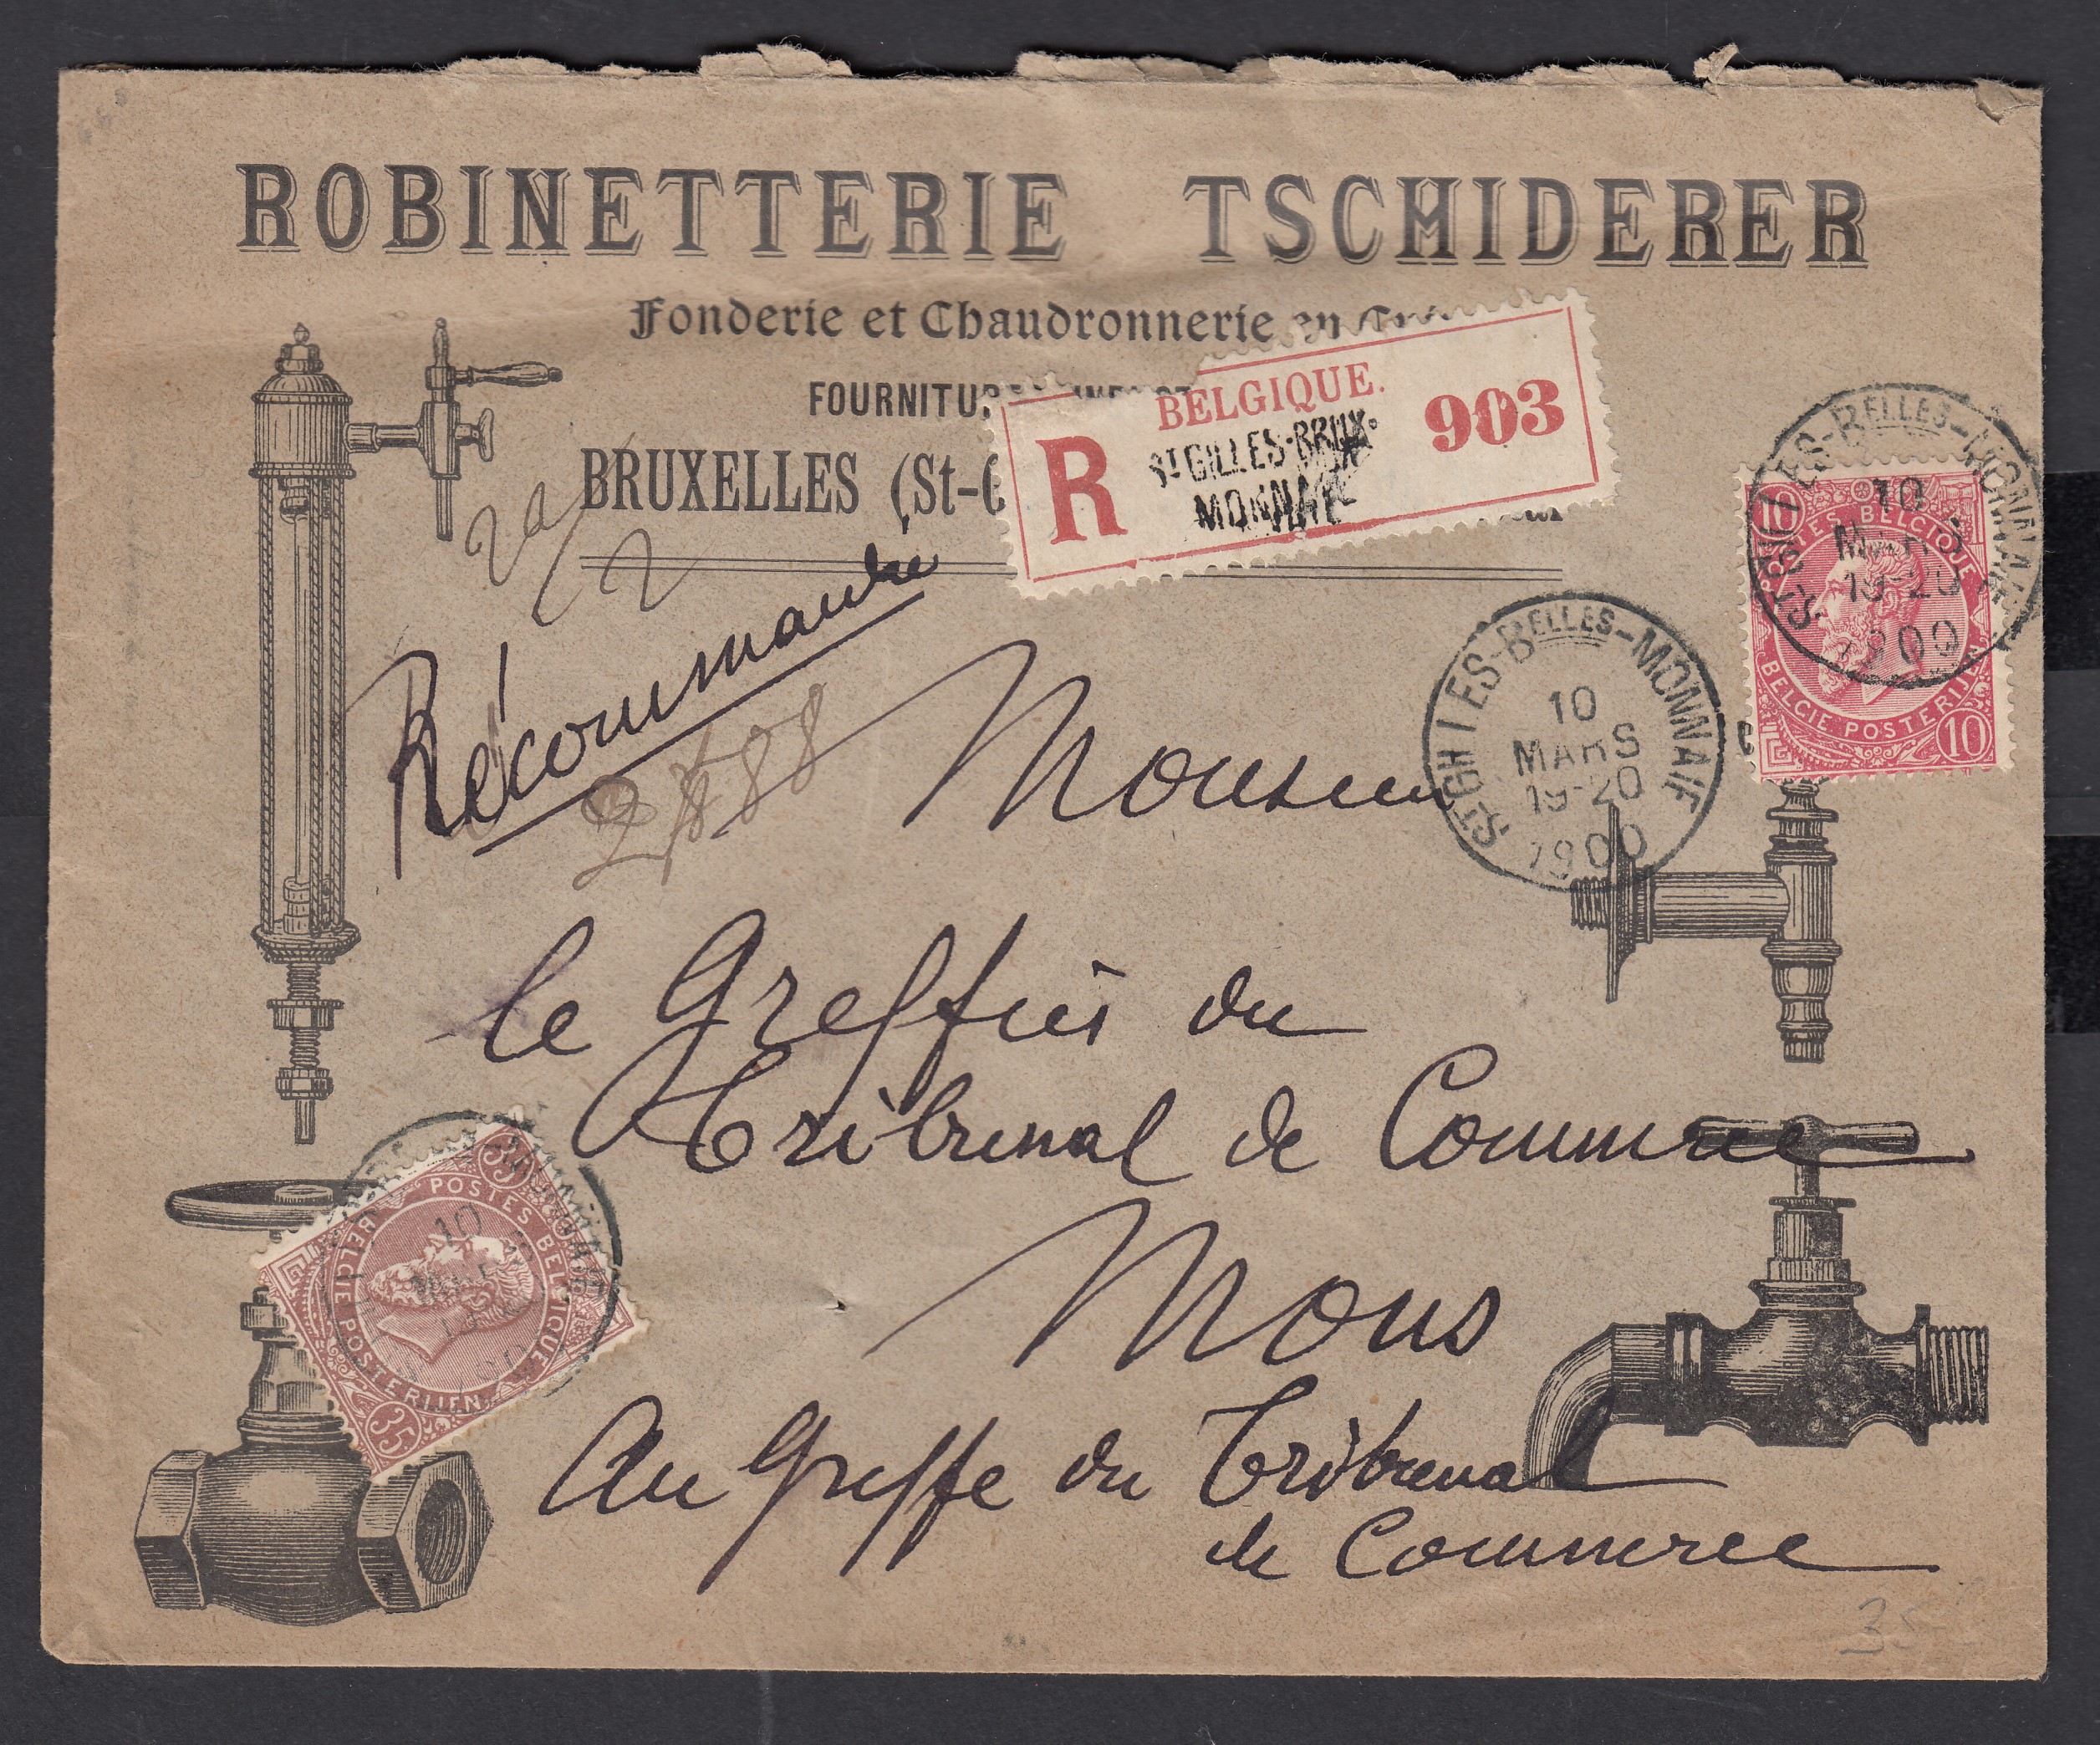 ROBINETTERIE TSCHIDERER
Fonderie et Chaudronnerie en
BRUXELLES
BELGIQUE.
R
ST GILLES-BRUX-
MONNAIE
903
Récommandée
Monsieur
le Greffier du
Tribunal de Commerce
Mons
Au Greffe du Tribunal
de Commerce
ST-GILLES-BELLES-MONNAIE
10
MARS
19-20
1900
10
POSTES BELGIQUE
BELGIE POSTERIJEN
10
ST-GILLES-BELLES-MONNAIE
10
MARS
19-20
1900
35
POSTES BELGIQUE
BELGIE POSTERIJEN
35
10
35